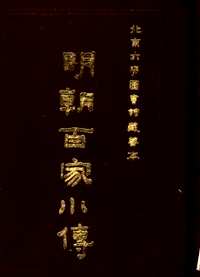 北京大學圖書館藏善本
明朝百家小傳